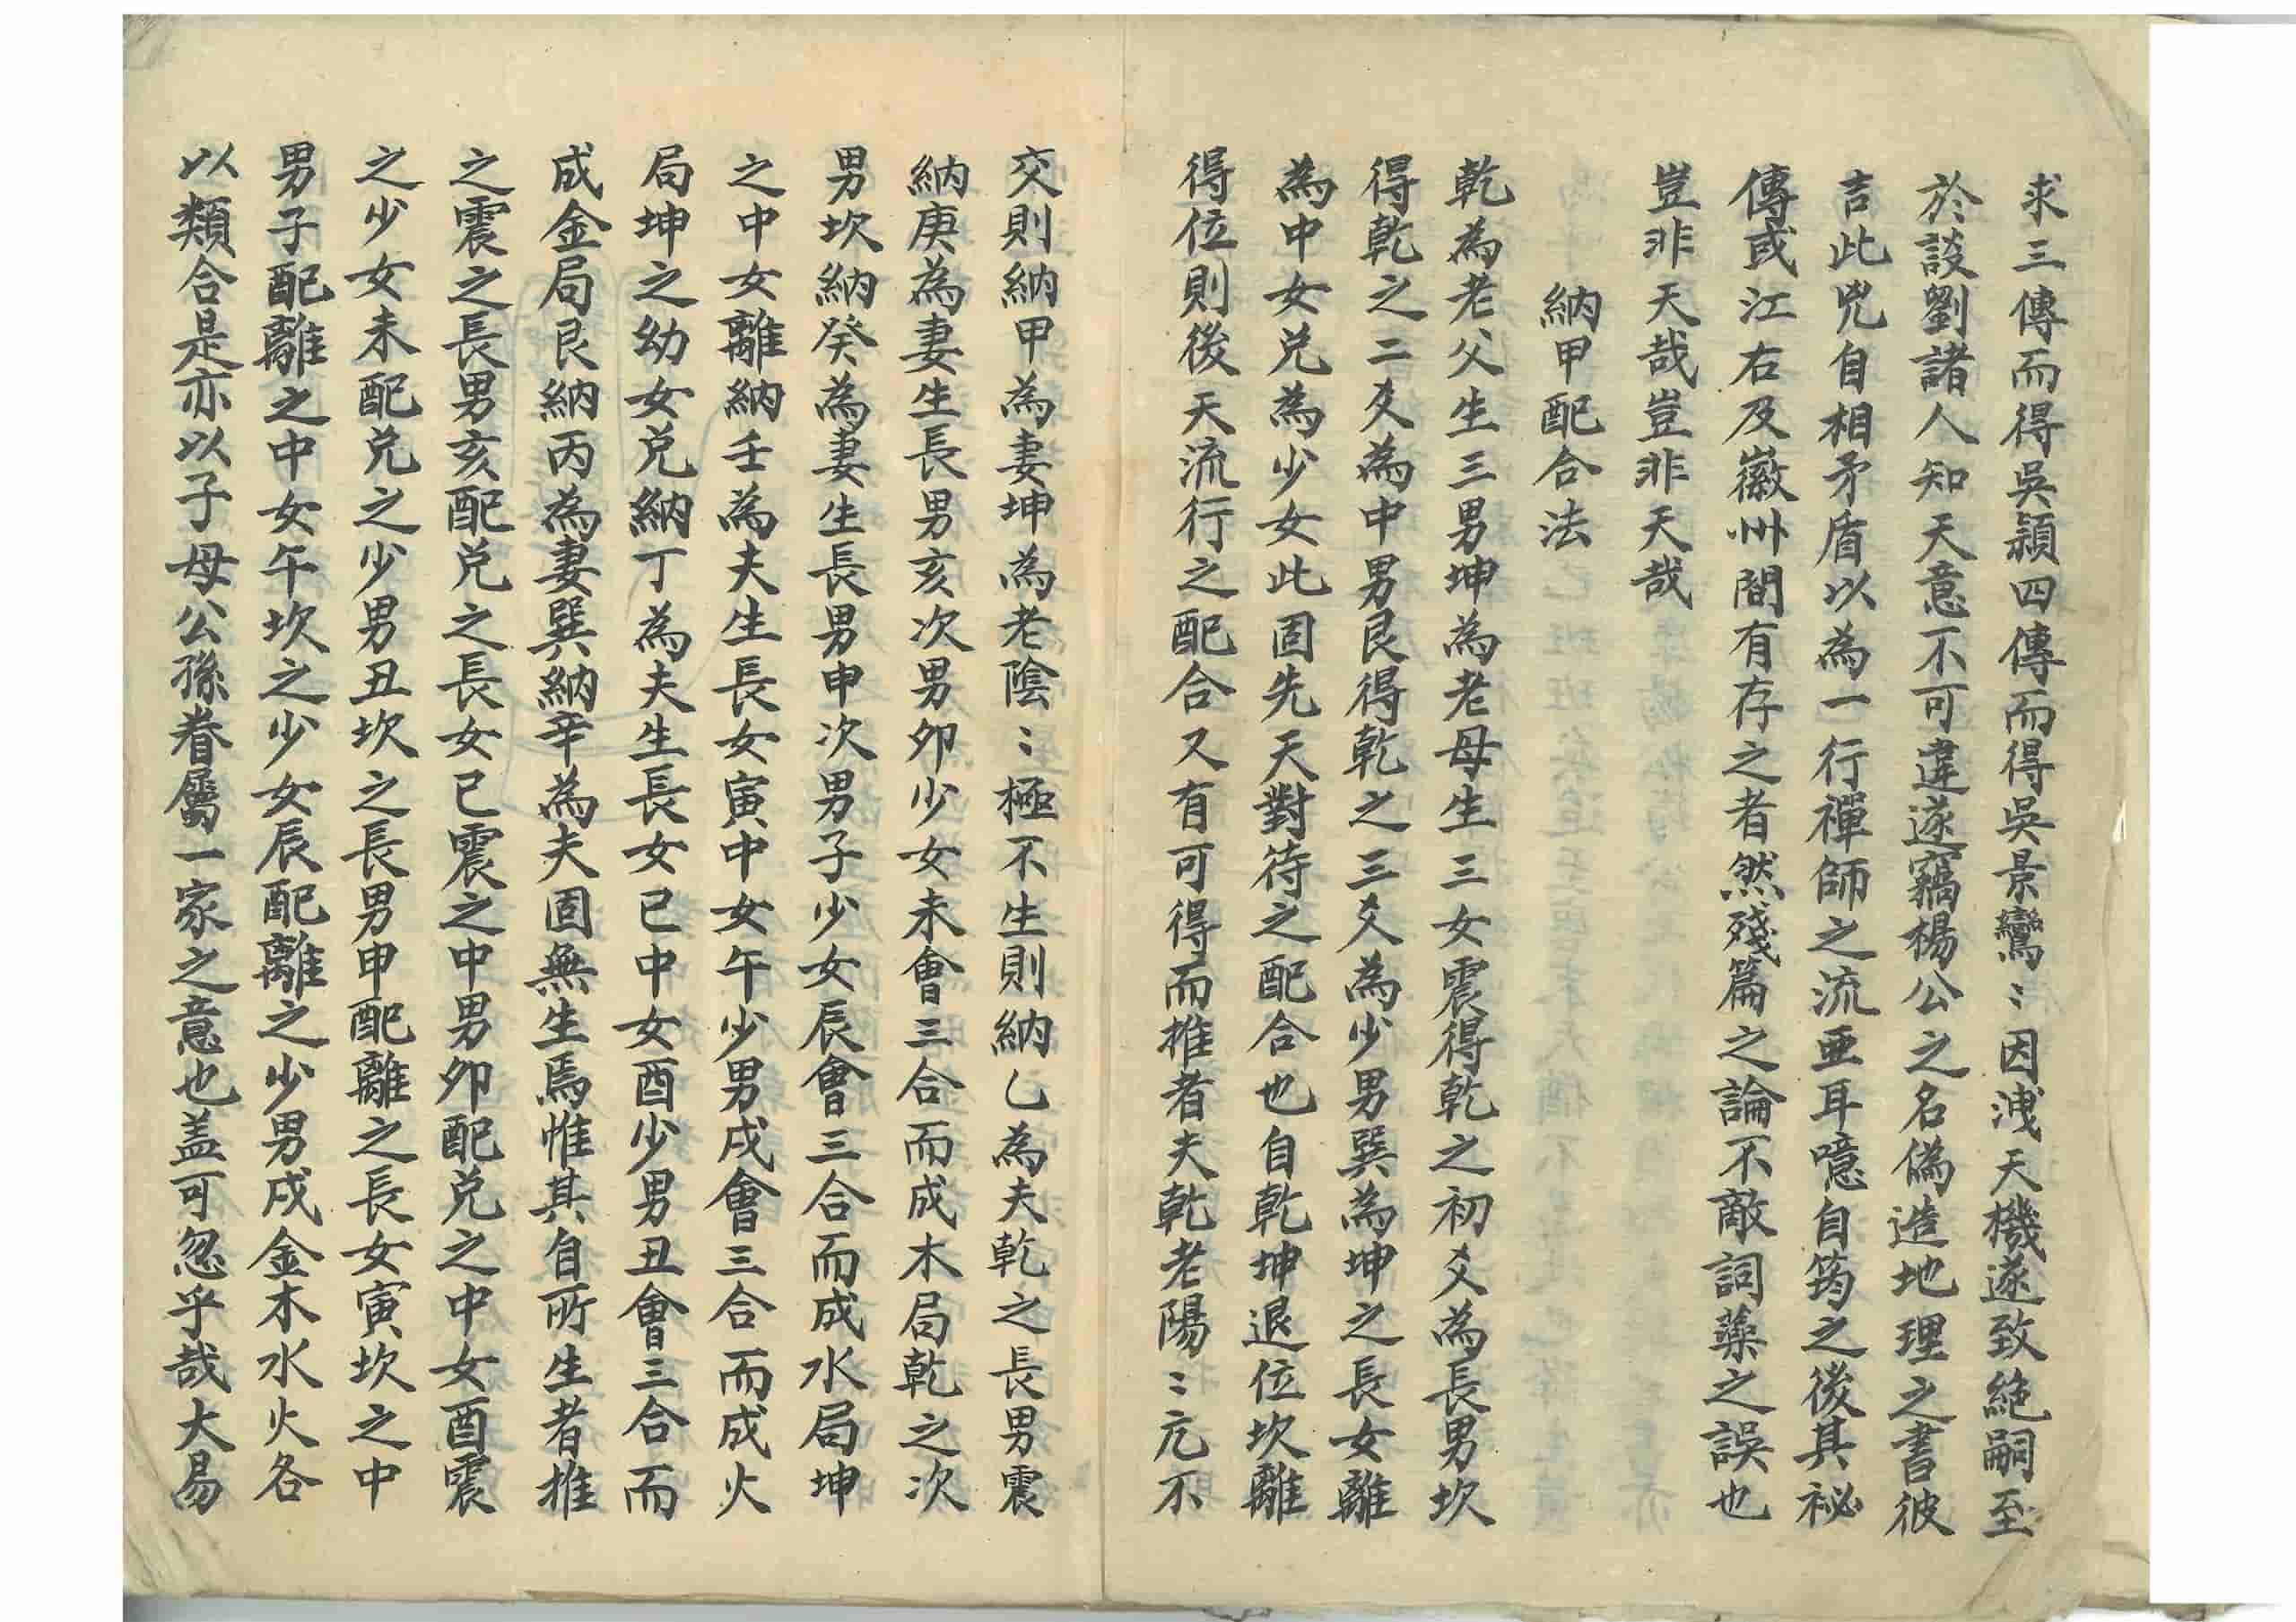 求三傳而得吳頴四傳而得吳景鸞〻因洩天機遂致絶嗣至
於談劉諸人知天意不可違遂竊楊公之名偽造地理之書彼
吉此兇自相矛盾以為一行禪師之流亜耳噫自筠之後其祕
傳或江右及徽州間有存之者然殘篇之論不敵詞藻之誤也
豈非天哉豈非天哉
納甲配合法
乾為老父生三男坤為老母生三女震得乾之初爻為長男坎
得乾之二爻為中男艮得乾之三爻為少男巽為坤之長女離
為中女兑為少女此固先天對待之配合也自乾坤退位坎離
得位則後天流行之配合又有可得而推者夫乾老陽〻亢不
交則納甲為妻坤為老陰〻極不生則納乙為夫乾之長男震
納庚為妻生長男亥次男夘少女未會三合而成木局乾之次
男坎納癸為妻生長男申次男子少女辰會三合而成水局坤
之中女離納壬為夫生長女寅中女午少男戌會三合而成火
局坤之幼女兑納丁為夫生長女巳中女酉少男丑會三合而
成金局艮納丙為妻巽納辛為夫固無生焉惟其自所生者推
之震之長男亥配兑之長女巳震之中男夘配兑之中女酉震
之少女未配兑之少男丑坎之長男申配離之長女寅坎之中
男子配離之中女午坎之少女辰配離之少男戌金木水火各
以類合是亦以子母公孫眷屬一家之意也盖可忽乎哉大易